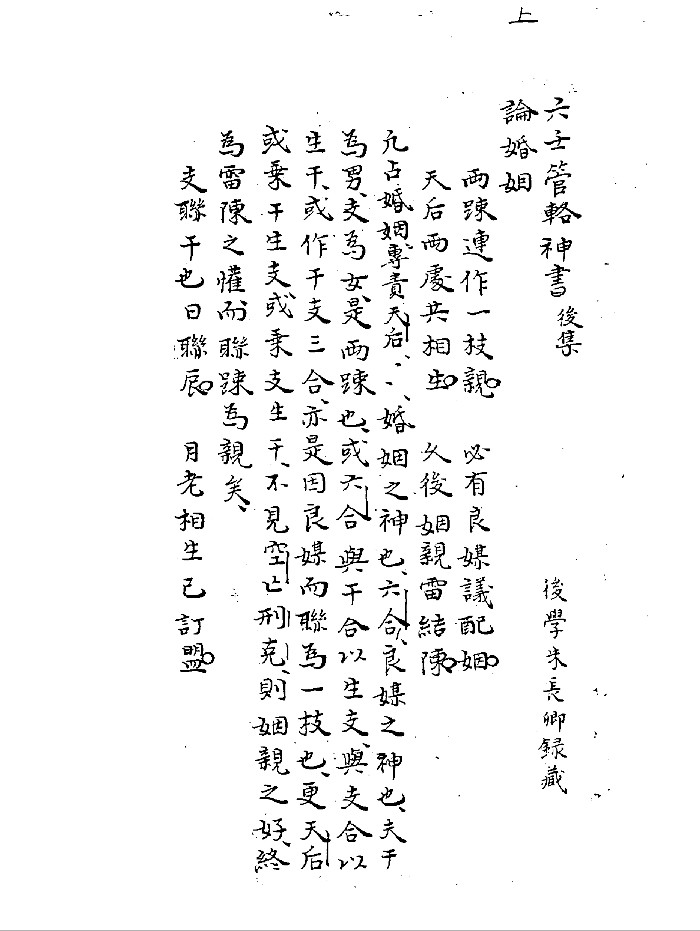 上
六壬管輅神書 後集 後學朱長卿録藏
論婚姻
兩踈連作一枝親。 必有良媒議配姻。
天后兩處共相生。 久後姻親雷結陳。
凢占婚姻、專責天后、、婚姻之神也、六合、良媒之神也、夫干
為男、支為女、是兩踈也、或六合與干合以生支、與支合以
生干、或作干支三合、亦是因良媒而聯為一技也、更天后
或乗干生支、或乗支生干、不見空亡刑克、則姻親之好、終
為雷陳之懽、而聯踈為親矣、
支聯干也曰聯辰。 月老相生已訂盟。